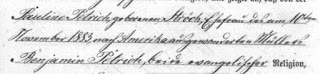 Pauline Petrich, geborenen Stroch, Ehefrau des am 10ten
November 1883 nach Amerika ausgewanderten Müllers
Benjamin Petrich, beide evangelischer Religion,